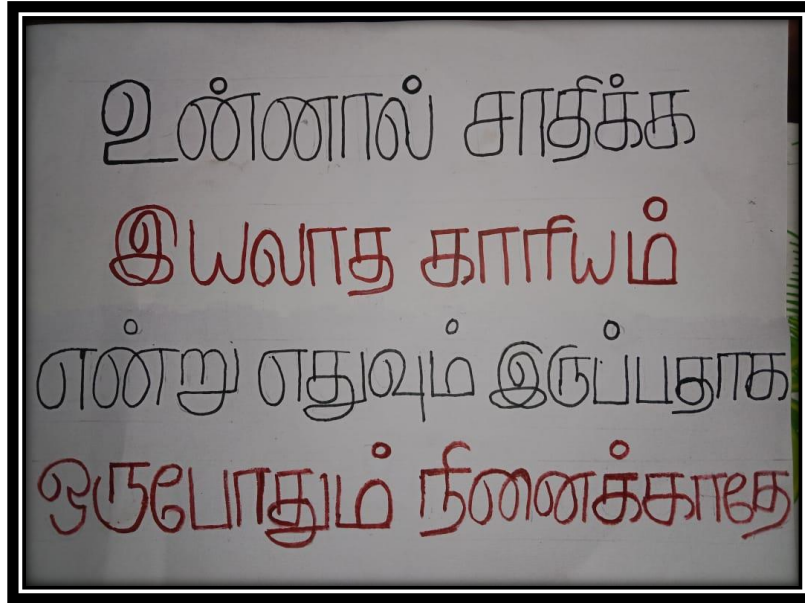 உன்னால் சாதிக்க
இயலாத காரியம்
என்று எதுவும் இருப்பதாக
ஒருபோதும் நினைக்காதே